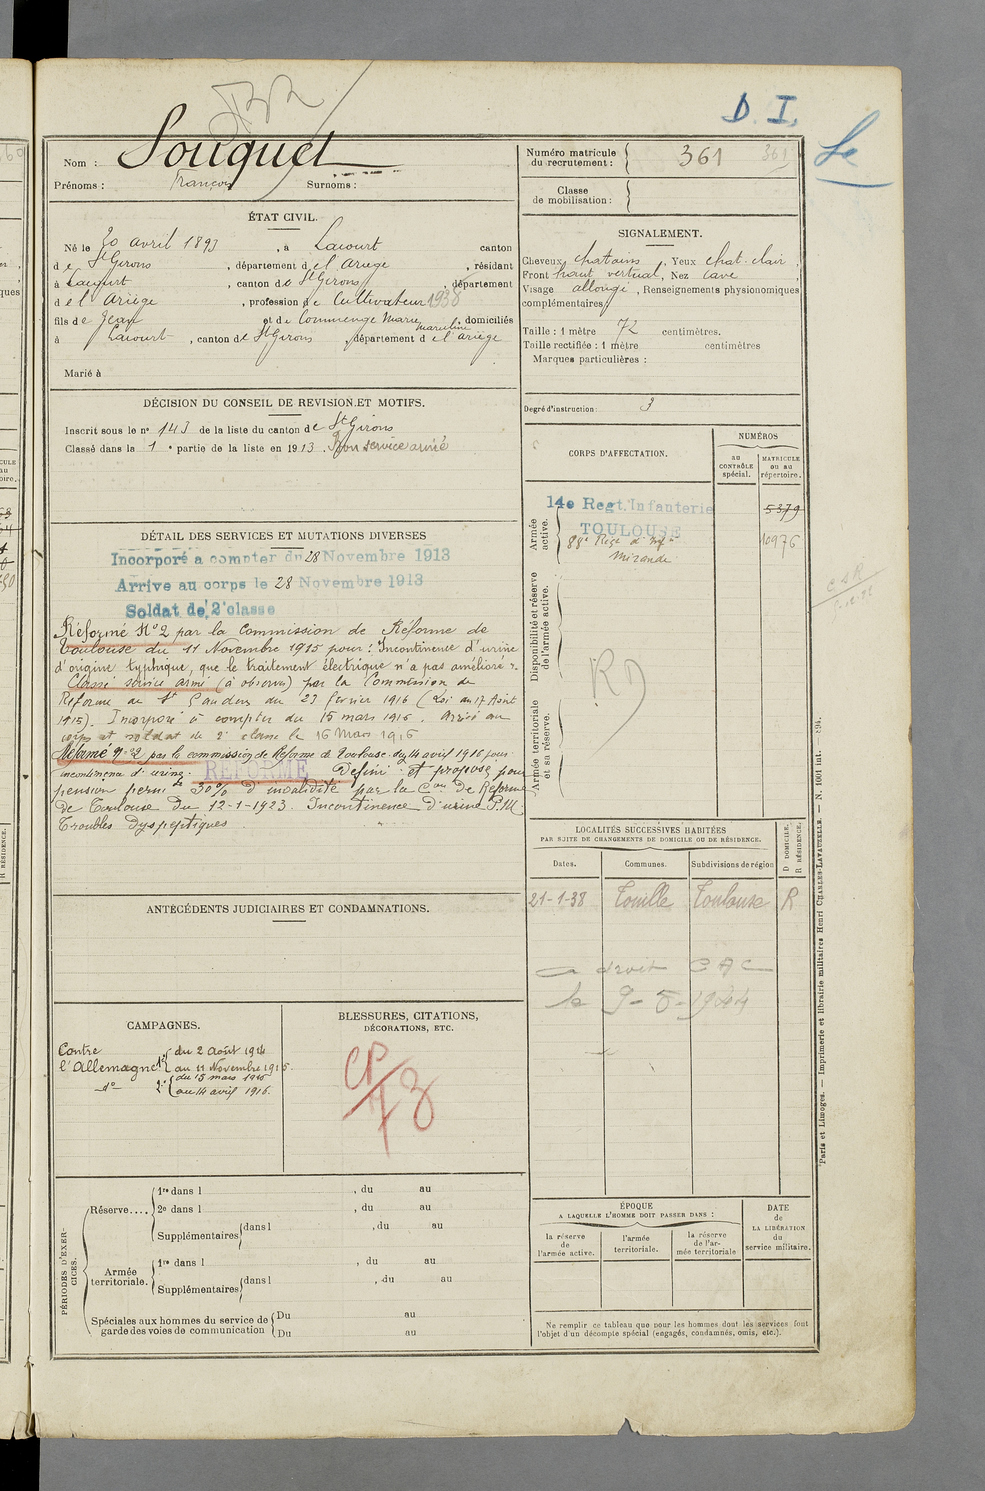 D. I.
Nom : Souquet
Prénoms : François Surnoms :
Numéro matricule du recrutement : 361 361
Classe de mobilisation :
ÉTAT CIVIL.
Né le 20 avril 1893, à Lacourt canton
de St Girons, département de l'Ariège, résidant
à Lacourt, canton de St Girons, département
de l'Ariège, profession de Cultivateur 1938
fils de Jean et de Commenge Marie Marceline, domiciliés
à Lacourt, canton de St Girons, département de l'ariège
Marié à
SIGNALEMENT.
Cheveux chatains, Yeux chat. clair
Front haut vertical, Nez cave
Visage allongé, Renseignements physionomiques
complémentaires
Taille : 1 mètre 72 centimètres.
Taille rectifiée : 1 mètre centimètres
Marques particulières :
Degré d'instruction : 3
DÉCISION DU CONSEIL DE REVISION ET MOTIFS.
Inscrit sous le no 143 de la liste du canton de St Girons
Classé dans la 1e partie de la liste en 1913. Bon service armé
DÉTAIL DES SERVICES ET MUTATIONS DIVERSES
Incorporé a compter du 28 Novembre 1913
Arrive au corps le 28 Novembre 1913
Soldat de 2e classe
Réformé No 2 par la Commission de Réforme de
Toulouse du 11 Novembre 1915 pour : Incontinence d'urine
d'origine typhique, que le traitement électrique n'a pas amélioré
Classé service armé (à observer) par la Commission de
Réforme de St Gaudens du 23 février 1916 (Loi du 17 Août
1915). Incorporé à compter du 15 mars 1916. Arrivé au
corps et soldat de 2e classe le 16 Mars 1916
Réformé No 2 par la commission de Réforme de Toulouse du 14 avril 1916 pour
incontinence d'urine. REFORMÉ Défini : et proposé pour
pension perm 30% d'invalidité par la Con de Réforme
de Toulouse du 12-1-1923. Incontinence d'urine P.M.
Troubles dyspeptiques
CORPS D'AFFECTATION.
NUMÉROS
au CONTRÔLE spécial.
MATRICULE ou au répertoire.
Armée active.
14e Regt. Infanterie
TOULOUSE
5379
88e Régt d'Inf
Mirande
10976
Disponibilité et réserve de l'armée active.
Armée territoriale et sa réserve.
LOCALITÉS SUCCESSIVES HABITÉES
PAR SUITE DE CHANGEMENTS DE DOMICILE OU DE RÉSIDENCE.
Dates. Communes. Subdivisions de région
D DOMICILE. R RÉSIDENCE.
21-1-38 Touille Toulouse R
a droit CAC
le 9-5-1944
ANTÉCÉDENTS JUDICIAIRES ET CONDAMNATIONS.
CAMPAGNES.
Contre l'Allemagne 1° du 2 Août 1914
au 11 Novembre 1915.
do 2° du 15 mars 1916
au 14 avril 1916.
BLESSURES, CITATIONS,
DÉCORATIONS, ETC.
CP
78
PÉRIODES D'EXERCICES.
Réserve.... 1re dans l , du au
2e dans l , du au
Supplémentaires dans l , du au
Armée territoriale. 1re dans l , du au
Supplémentaires dans l , du au
Spéciales aux hommes du service de garde des voies de communication
Du au
Du au
ÉPOQUE
A LAQUELLE L'HOMME DOIT PASSER DANS :
la réserve de l'armée active.
l'armée territoriale.
la réserve de l'armée territoriale
DATE de LA LIBÉRATION du service militaire.
Ne remplir ce tableau que pour les hommes dont les services font
l'objet d'un décompte spécial (engagés, condamnés, omis, etc.).
Paris et Limoges. — Imprimerie et librairie militaires Henri CHARLES-LAVAUZELLE. — N. 1001 int.